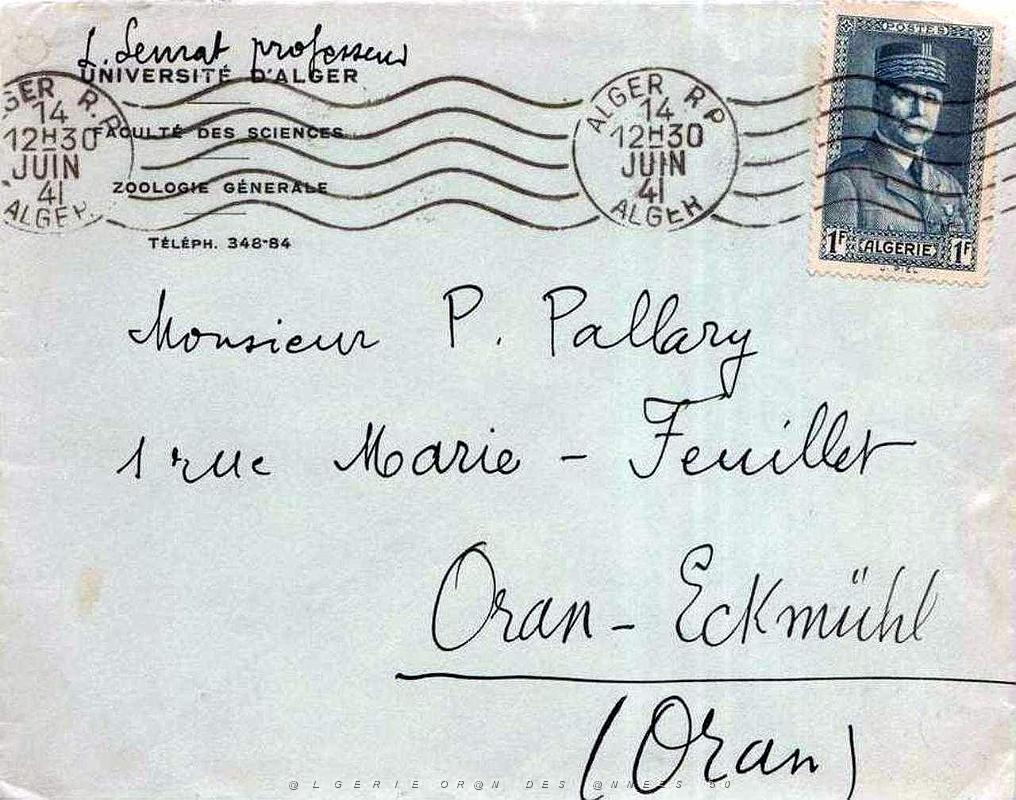 L. Seurat professeur
UNIVERSITÉ D'ALGER
FACULTÉ DES SCIENCES
ZOOLOGIE GÉNERALE
TÉLÉPH. 348-84
GER R.P
14
12H30
JUIN
41
ALGER
ALGER R P
14
12H30
JUIN
41
ALGER
POSTES
1F ALGÉRIE 1F
Monsieur P. Pallary
1 rue Marie - Feuillet
Oran - Eckmühl
(Oran)
@LGERIE OR@N DES @NNEES 50